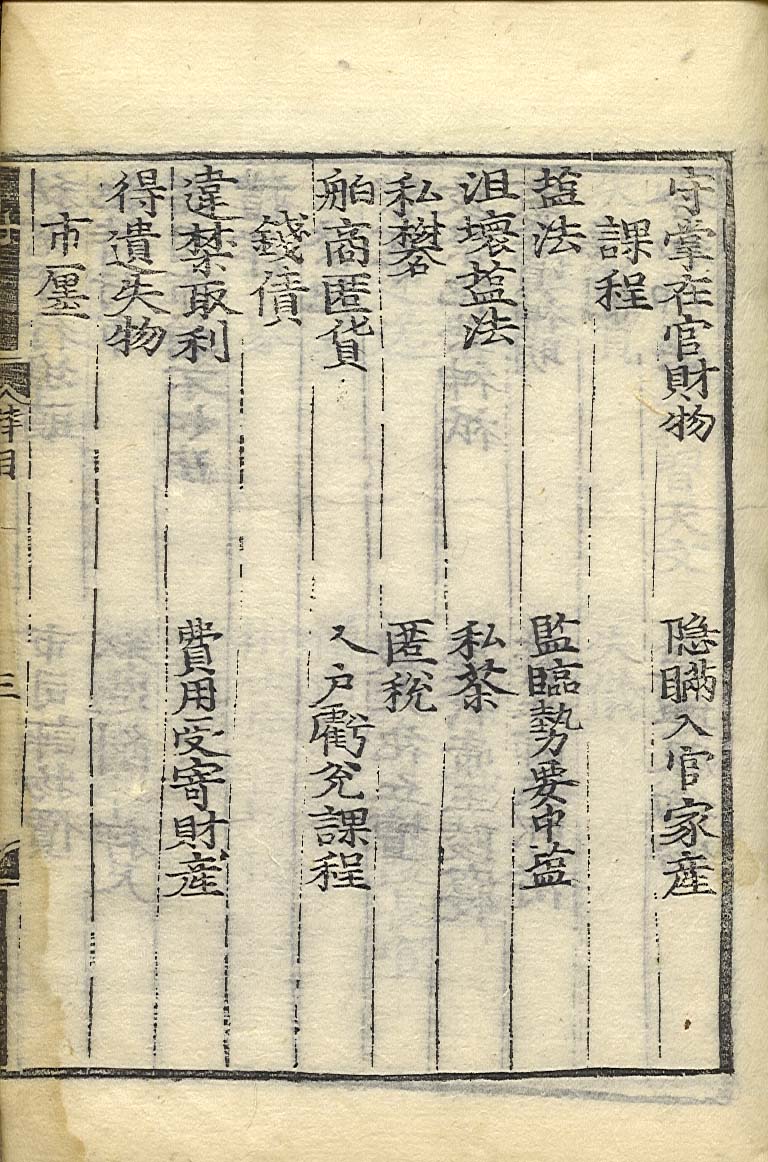 守掌在官財物　隐瞞入官家產
課程
塩法　監臨勢要中塩
沮壞塩法　私茶
私礬　匿稅
舶商匿貨　人戶虧兌課程
錢債
違禁取利　費用受寄財產
得遺失物
市廛
三